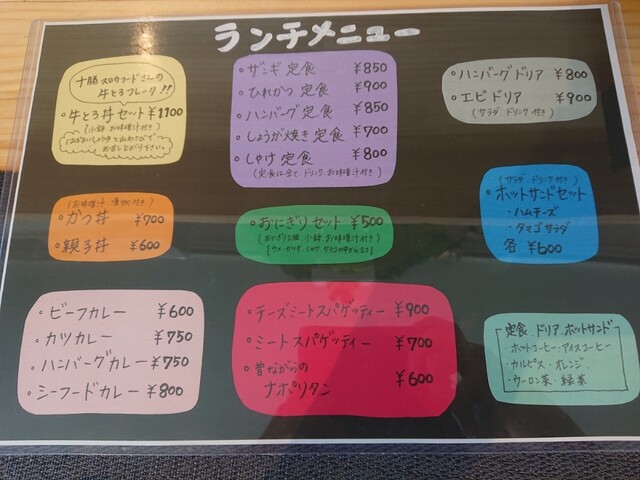 ランチメニュー
十勝スロウフードさんの
牛とろフレーク!!
・牛とろ丼セット ¥1100
(小鉢 お味噌汁付き)
お召し上がり下さい。
・ザンギ 定食 ¥850
・ひれかつ 定食 ¥900
・ハンバーグ 定食 ¥850
・しょうが焼き 定食 ¥700
・しゃけ 定食 ¥800
(定食は全て ドリンク お味噌汁付き)
・ハンバーグドリア ¥800
・エビドリア ¥900
(サラダ ドリンク付き)
(お味噌汁 漬物付き)
・かつ丼 ¥700
・親子丼 ¥600
・おにぎりセット ¥500
(サラダ ドリンク付き)
・ホットサンドセット
・ハムチーズ
・タマゴサラダ
各 ¥600
・ビーフカレー ¥600
・カツカレー ¥750
・ハンバーグカレー ¥750
・シーフードカレー ¥800
・チーズミートスパゲッティー ¥900
・ミートスパゲッティー ¥700
・昔ながらの
ナポリタン ¥600
定食 ドリア ホットサンド
・ホットコーヒー・アイスコーヒー
・カルピス・オレンジ
・ウーロン茶・緑茶